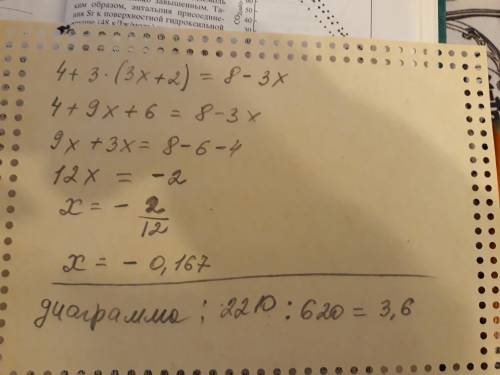 ким образом, энтальпия присоедине-
ния Sr к поверхностной гидроксильной
4 + 3 · (3x + 2) = 8 - 3x
4 + 9x + 6 = 8 - 3x
9x + 3x = 8 - 6 - 4
12x = -2
x = - 2/12
x = - 0,167
диаграмма : 2210 : 620 = 3,6